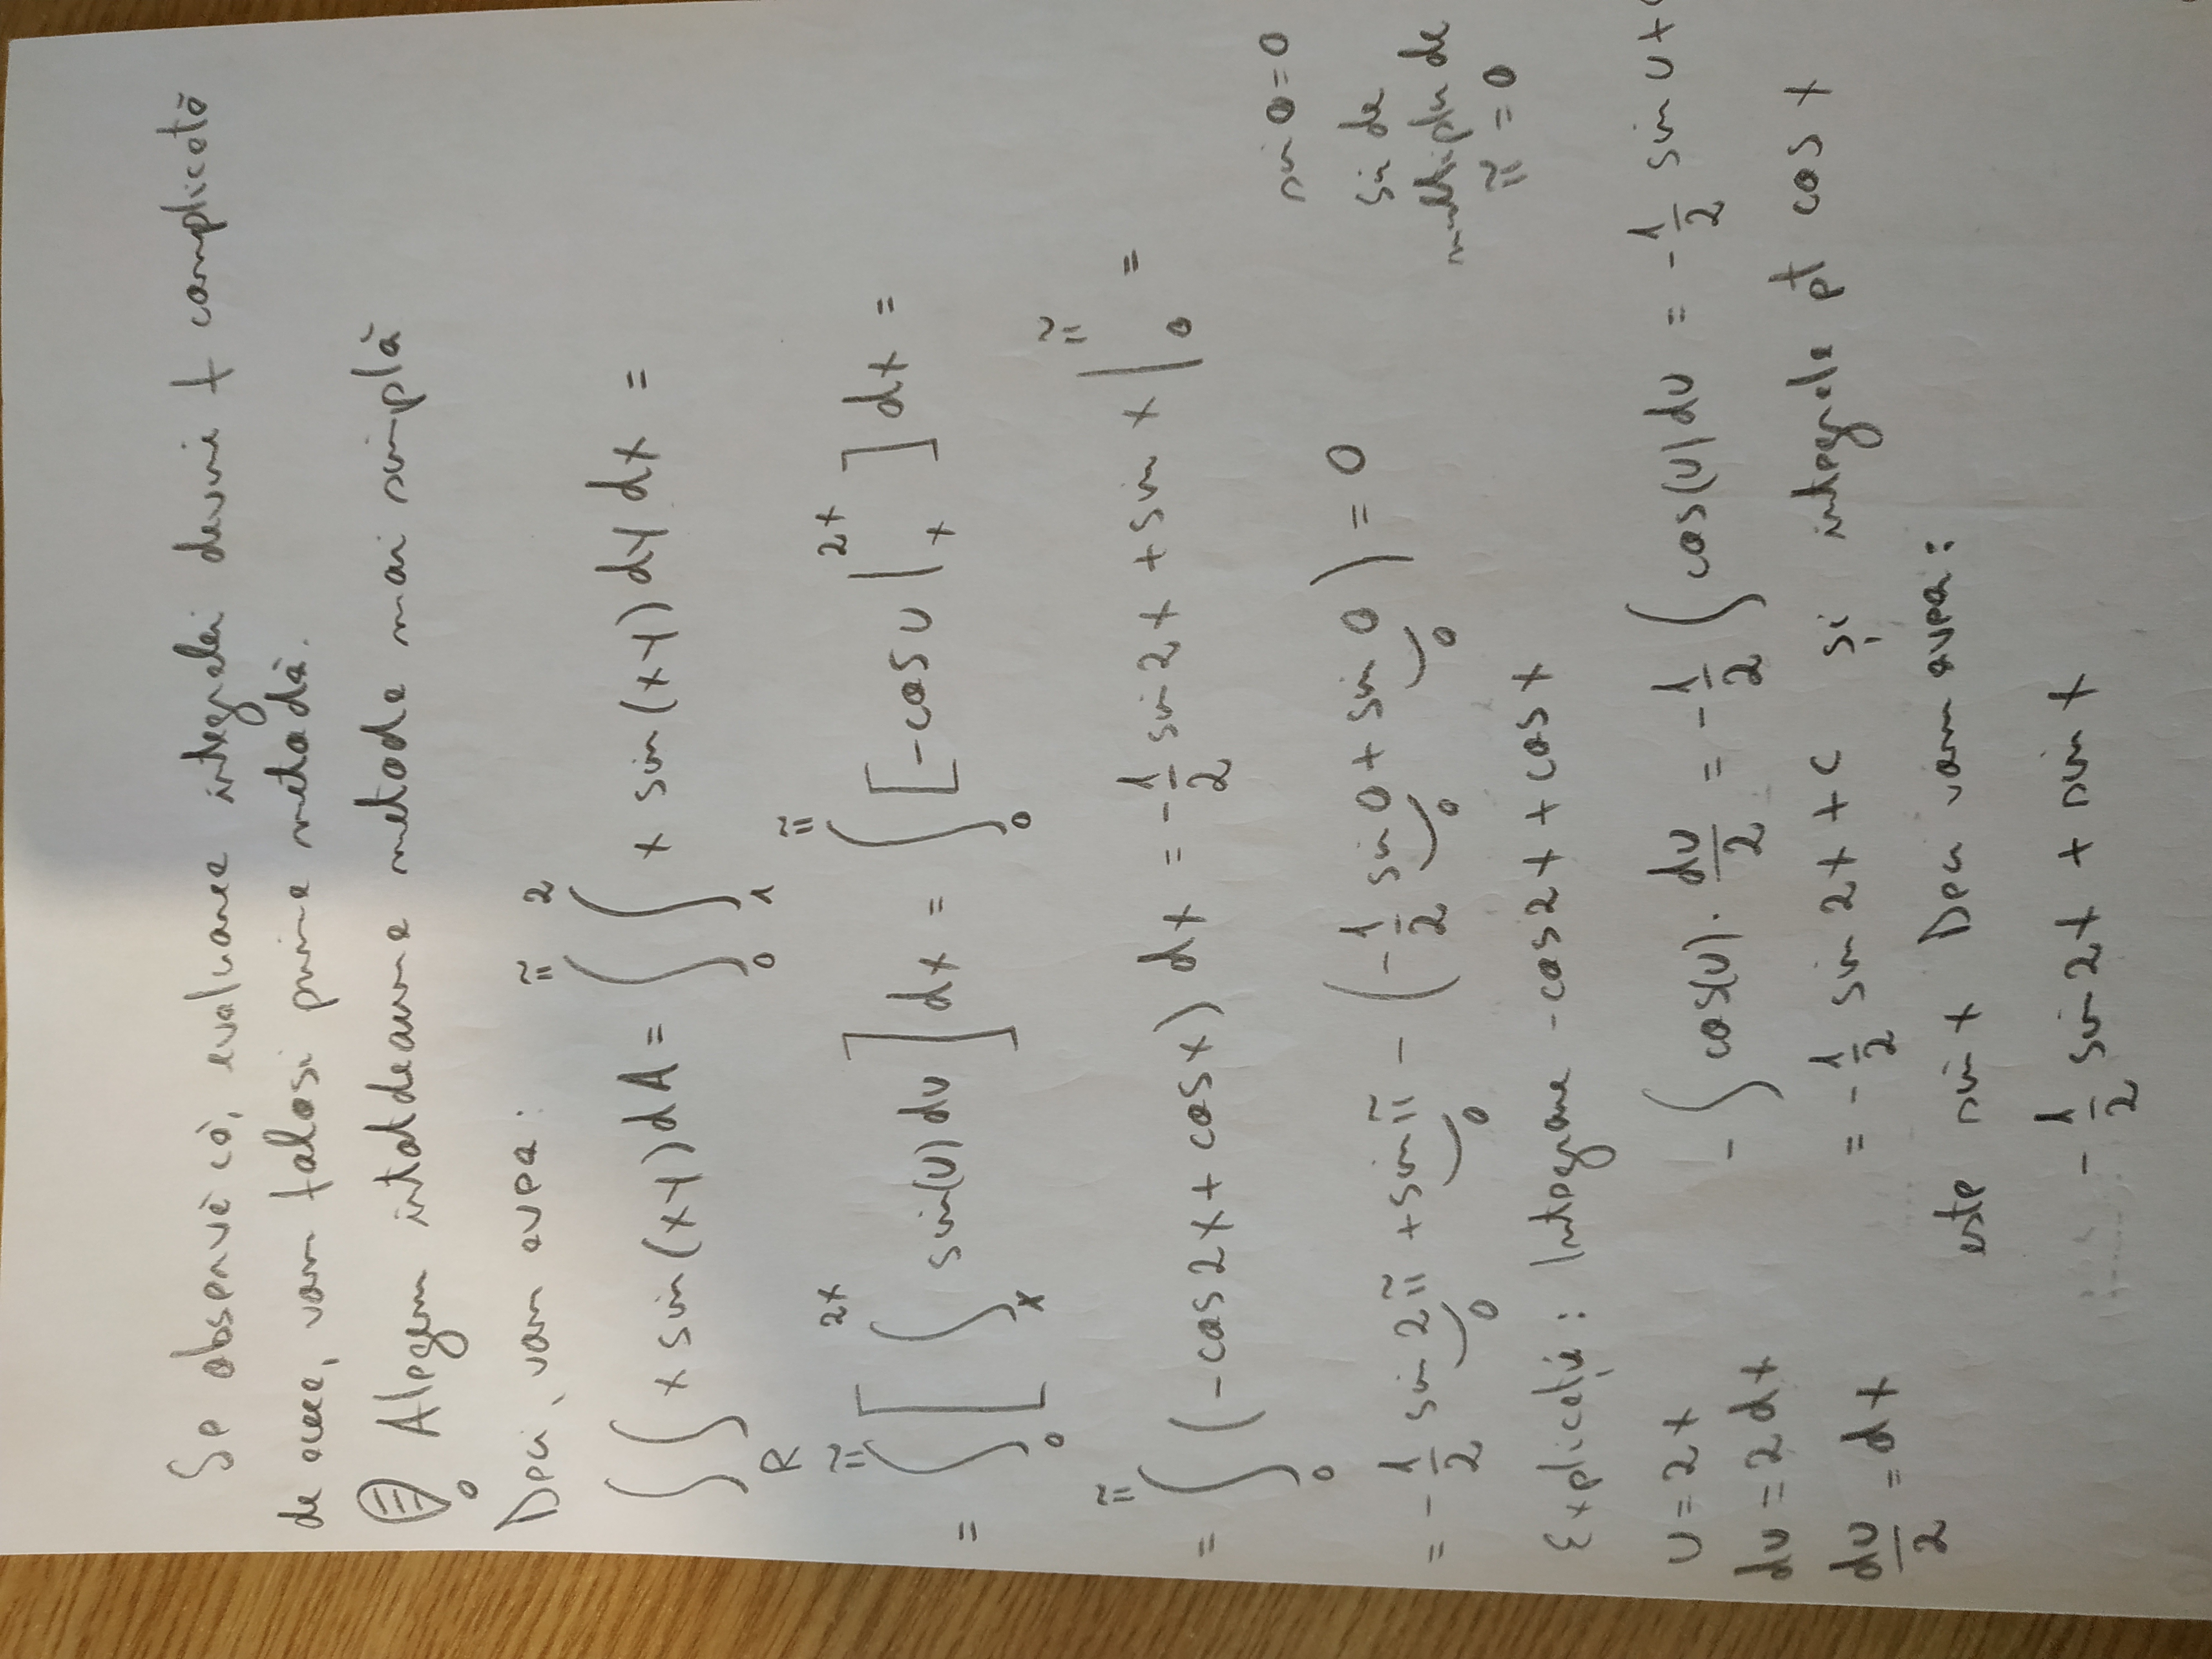 Se observă că, evaluarea integralei devine f complicată
de aceea, vom folosi prima metodă.
! Alegem întotdeauna metoda mai simplă
Deci, vom avea:
∫∫_R x sin(xy) dA = ∫_0^π ∫_1^2 x sin(xy) dy dx =
= ∫_0^π [ ∫_x^{2x} sin(u) du ] dx = ∫_0^π [ -cos u |_x^{2x} ] dx =
= ∫_0^π (-cos 2x + cos x) dx = -1/2 sin 2x + sin x |_0^π =
= -1/2 sin 2π + sin π - (-1/2 sin 0 + sin 0) = 0
0 0 0 0
sin 0 = 0
Si de
multiplu de
π = 0
Explicație: Integrare -cos 2x + cos x
u = 2x
du = 2 dx
du/2 = dx
-∫ cos(u) · du/2 = -1/2 ∫ cos(u) du = -1/2 sin u + c
= -1/2 sin 2x + c și integrala pt cos x
este sin x Deci vom avea:
-1/2 sin 2x + sin x